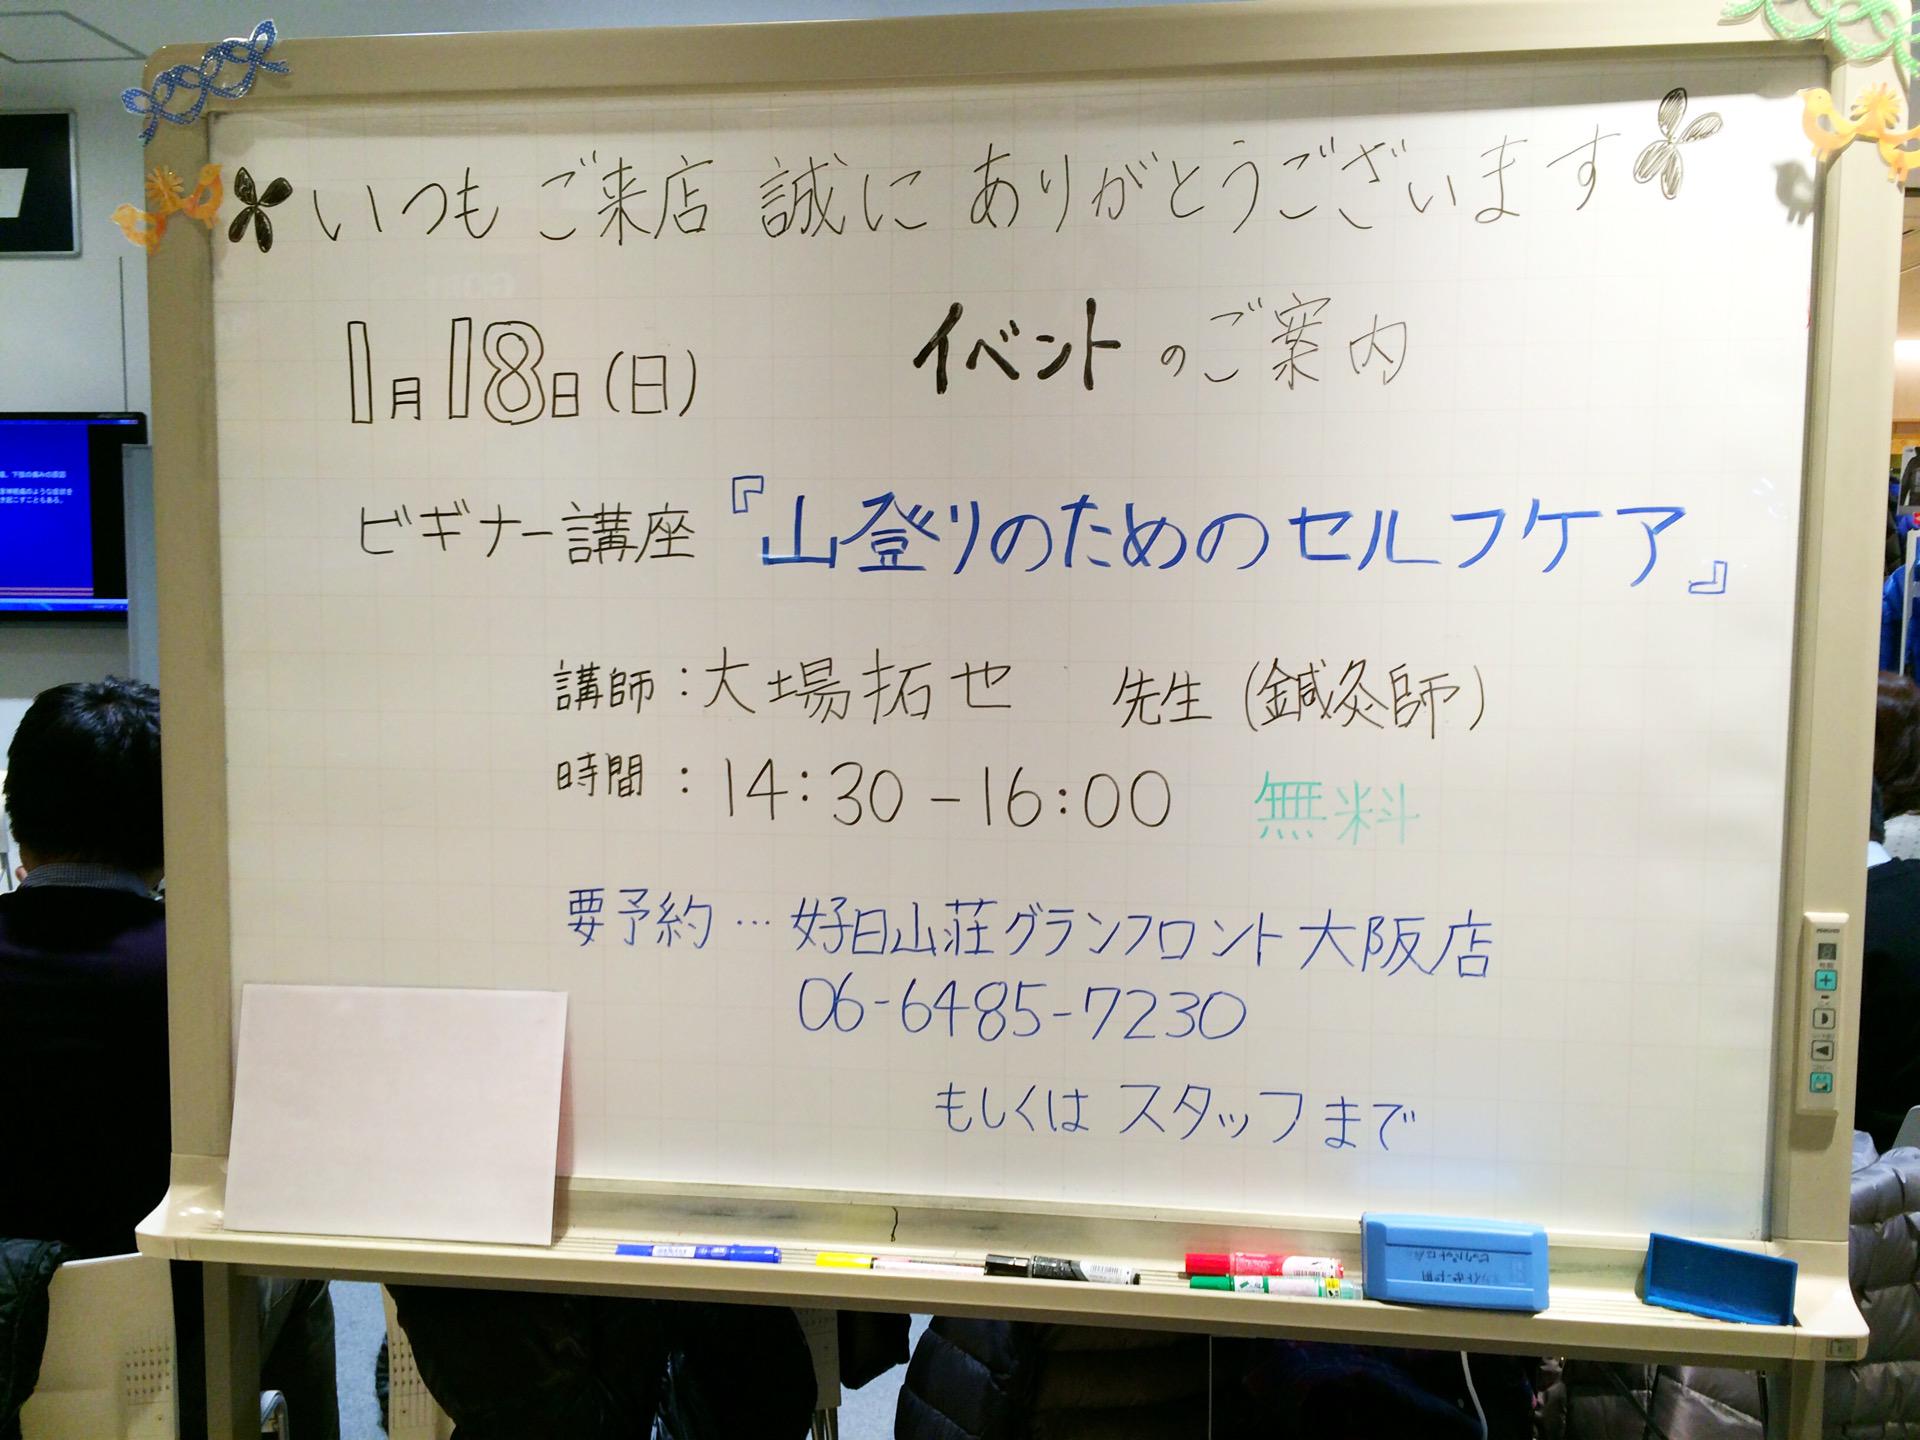 いつも ご来店 誠に ありがとうございます
1月18日(日) イベントのご案内
ビギナー講座『山登りのためのセルフケア』
講師:大場拓也 先生(鍼灸師)
時間:14:30-16:00 無料
要予約…好日山荘グランフロント大阪店
06-6485-7230
もしくは スタッフまで